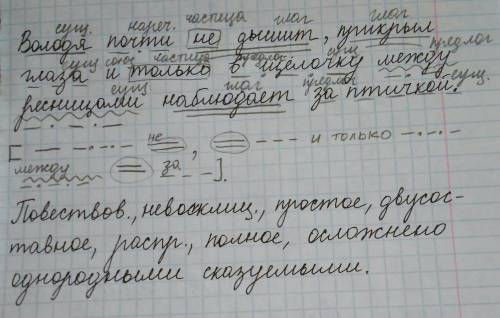 сущ. нареч. частица глаг глаг
Володя почти не дышит, прикрыл
сущ союз частица предлог сущ предлог
глаза и только в щёлочку между
сущ глаг предлог сущ.
ресницами наблюдает за птичкой.
[ не , и только
между за ].
Повествов., невосклиц., простое, двусос-
тавное, распр., полное, осложнено
однородными сказуемыми.